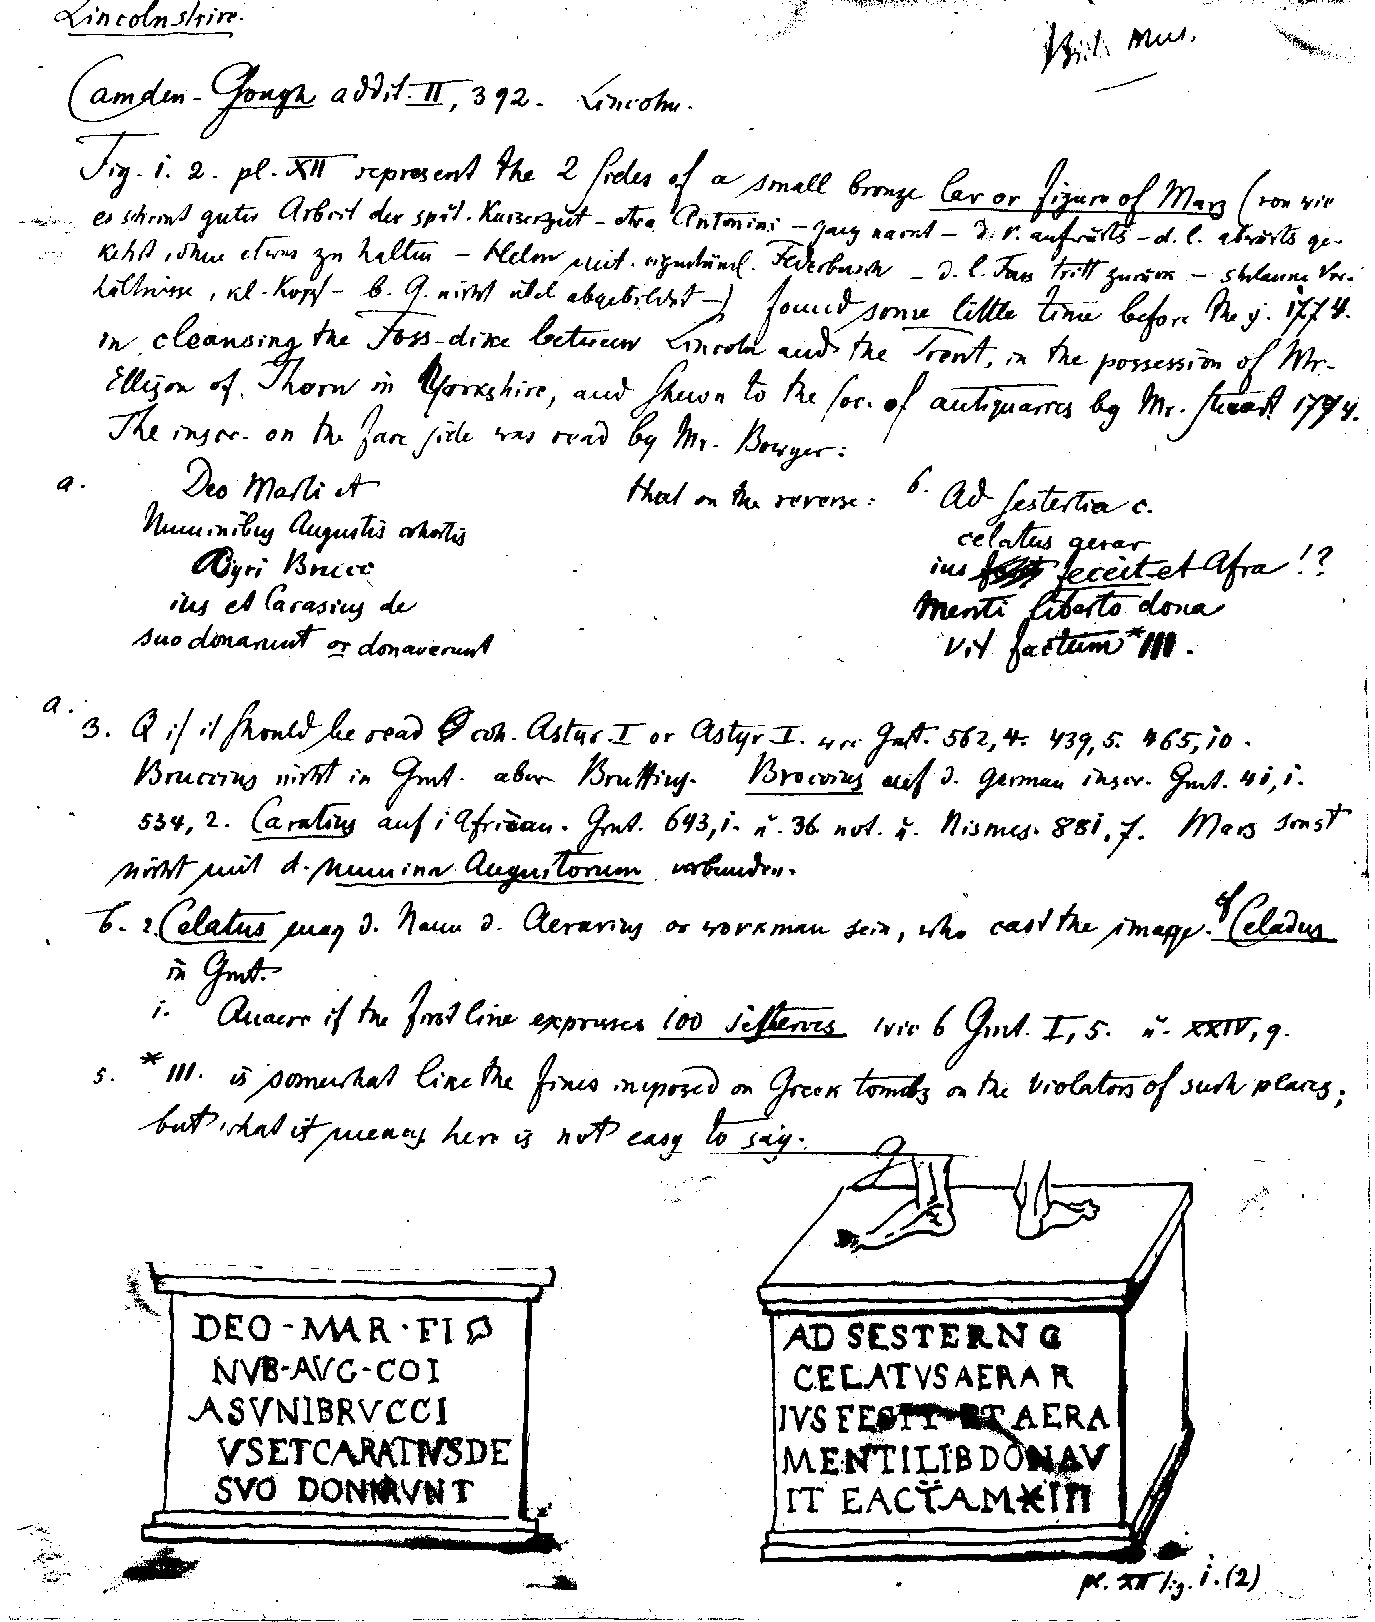 Lincolnshire.
Brit. Mus.
Camden-Gough addit. II, 392. Lincoln.
Fig. i. 2. pl. XII represent the 2 sides of a small bronze lar or figure of Mars (von wie
es scheint guter Arbeit der spät. Kaiserzeit – etwa Antonini – ganz nackt – d. r. aufwärts – d. l. abwärts ge-
kehrt, ohne etwas zu halten – Helm mit eigenthüml. Federbusch – d. l. Fuss tritt zurück – schlanke Ver-
hältnisse, kl. Kopf – b. G. nicht übel abgebildet –) found some little time before the y. 1774.
in cleansing the Foss-dike between Lincoln and the Trent, in the possession of Mr.
Ellison of Thorn in Yorkshire, and shewn to the soc. of antiquaries by Mr. 1774.
The inscr. on the fare side was read by Mr. Bowyer:
a. Deo Marti et that on the reverse: b. Ad sestertia c.
Numinibus Augustis cohortis celatus gerar
Ayri Brucc ius feceit et Afra!?
ius et Carasius de menti liberto dona
suo donarunt or donaverunt vit factum *III.
a.
3. Q if it should be read coh. Astur. I or Astyr I. wie Grut. 562,4. 439,5. 465,10.
Bruccius nicht in Grut. aber Bruttius. Broccius auf d. german inscr. Grut. 41,i.
534,2. Caratius auf i African. Grut. 643,i. u. 36 not. u. Nismes. 881,7. Mars sonst
nicht mit d. numina Augustorum verbunden.
b. 2. Celatus mag d. Name d. Aerarius or workman sein, who cast the image. cf Celadus
in Grut.
i. Quaere if the first line expresses 100 sesterces wie b Grut. I,5. u. XXIV,9.
5. *III. is somewhat like the fines imposed on Greek tombs on the violators of such places;
but what it means here is not easy to say.
DEO - MAR · TI
NVB-AVG-COI
ASVNIBRVCCI
VSETCARATIVSDE
SVO DONARVNT
AD SESTERN C
CELATVSAERAR
IVS FECIT ET AERA
MENTILIBDONAV
IT EACTAM✶III
pl. XII fig. i. (2)